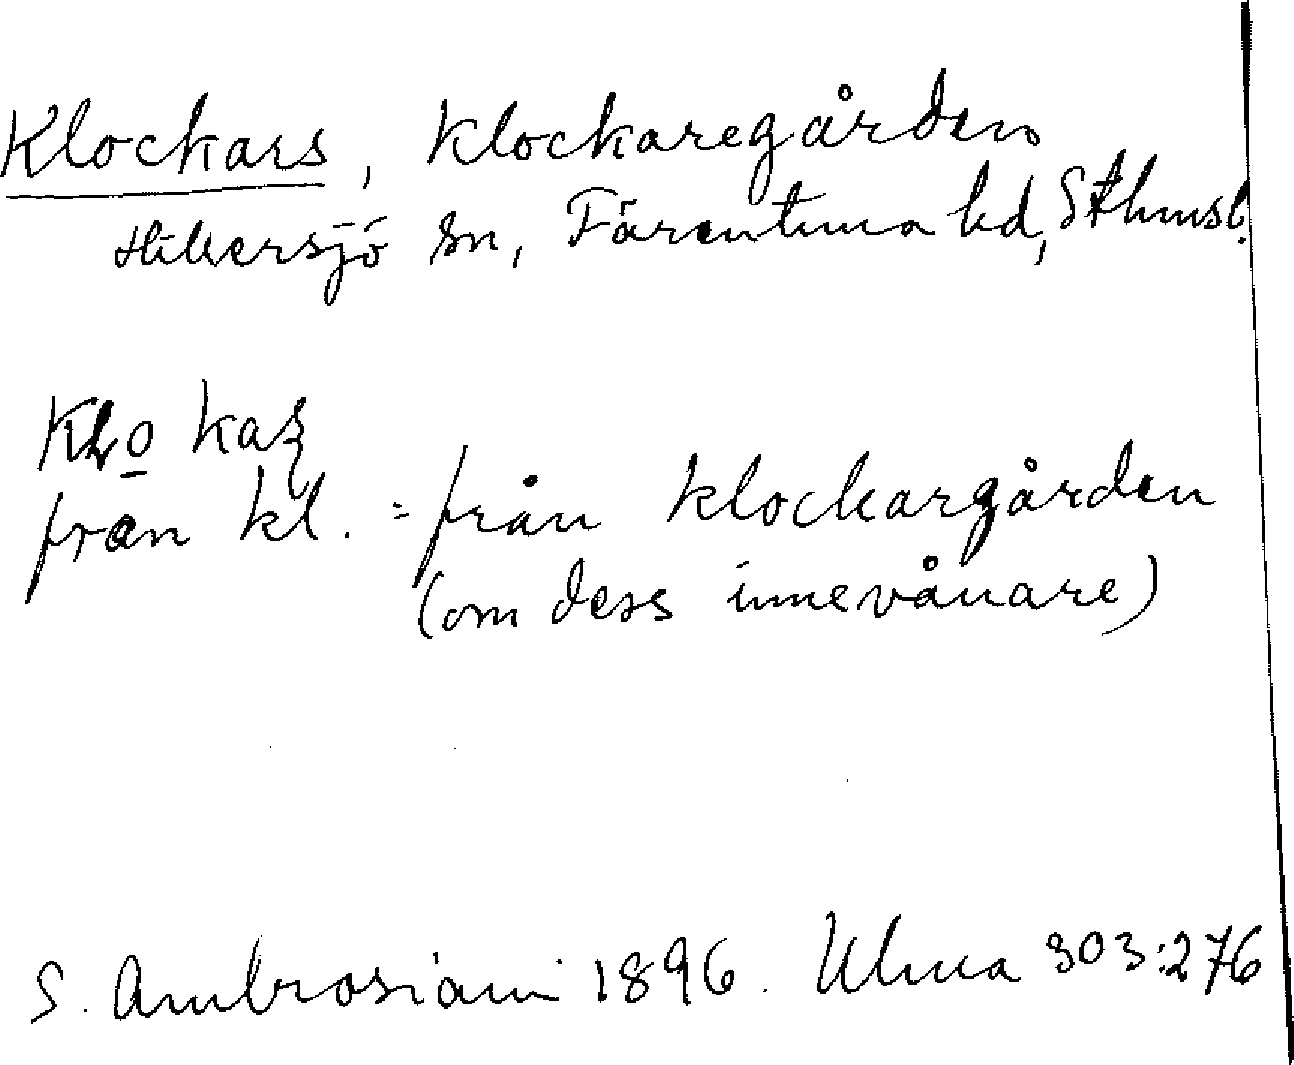 Klockars, Klockaregården
Hilleersjö sn, Färentuna hd, Sthmsl.
från kl. = från klockargården
(om dess innevånare)
S. Ambrosiani 1896. Ulma 303:276